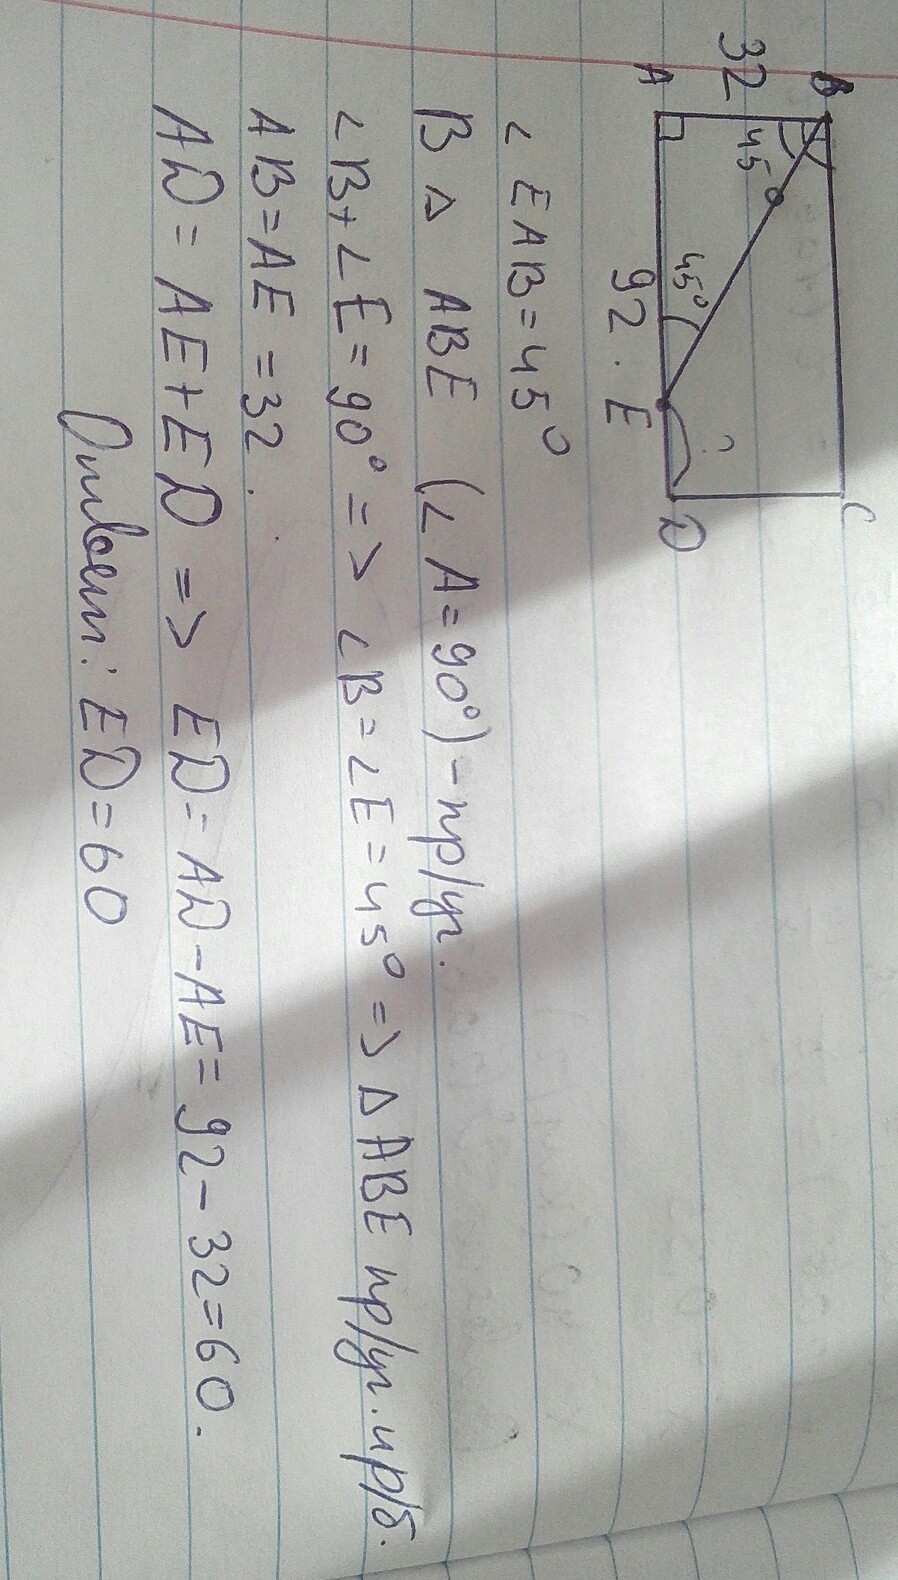 B
C
32
45°
45°
?
A
92
E
D
∠ EAB = 45°
В △ ABE (∠ A = 90°) - пр/уг.
∠B + ∠E = 90° => ∠B = ∠E = 45° => △ ABE пр/уг. ир/б.
AB = AE = 32.
AD = AE + ED => ED = AD - AE = 92 - 32 = 60.
Ответ: ED = 60